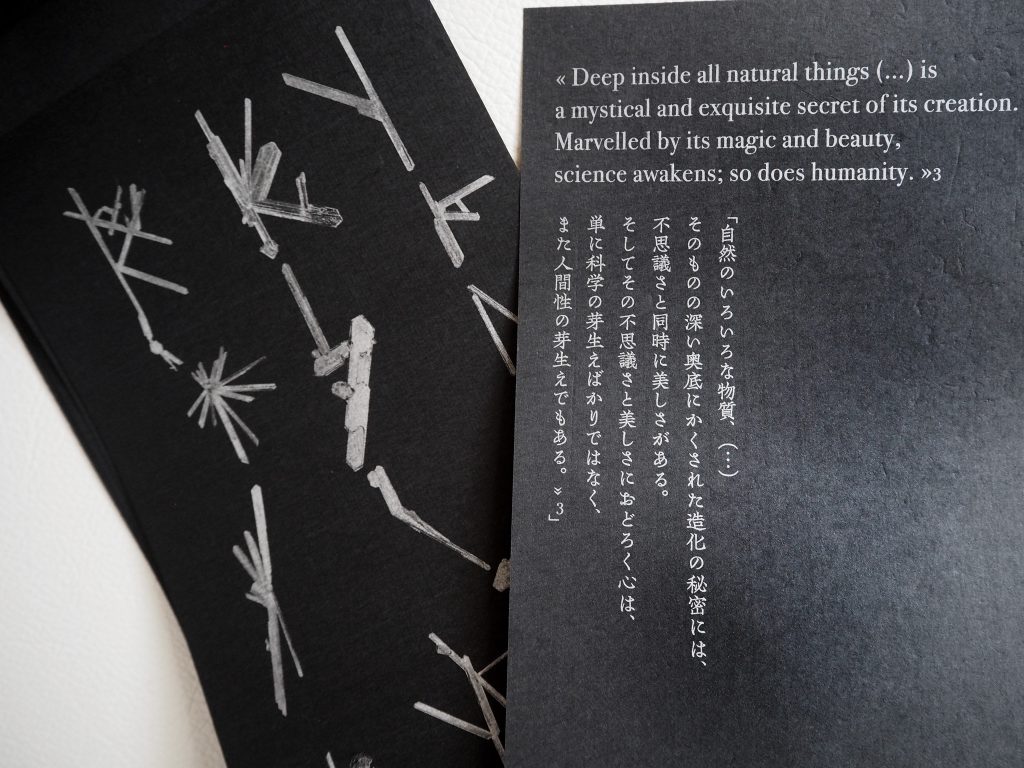 « Deep inside all natural things (…) is
a mystical and exquisite secret of its creation.
Marvelled by its magic and beauty,
science awakens; so does humanity. »3
「自然のいろいろな物質、(…)
そのものの深い奥底にかくされた造化の秘密には、
不思議さと同時に美しさがある。
そしてその不思議さと美しさにおどろく心は、
単に科学の芽生えばかりではなく、
また人間性の芽生えでもある。» 3」